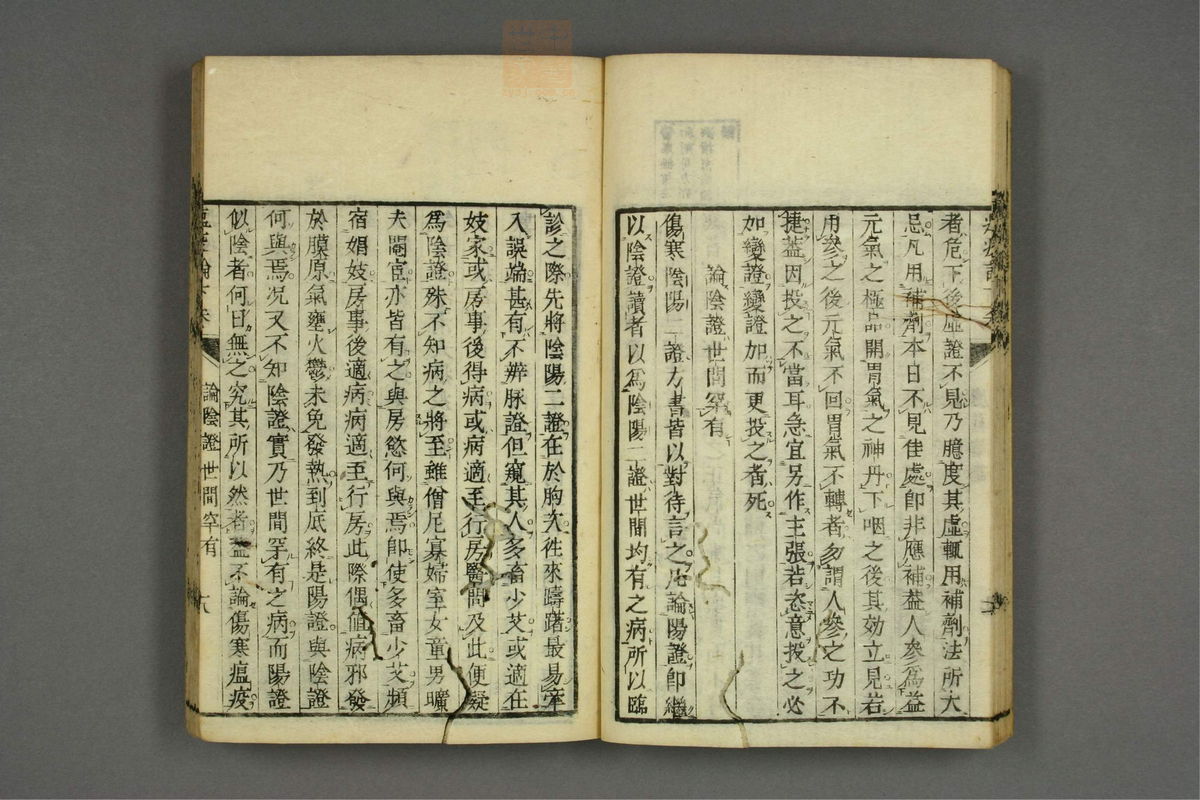 者危下後虛證不見乃臆度其虛輒用補劑法所大
忌凡用補劑本日不見佳處即非應補蓋人參爲益
元氣之極品開胃氣之神丹下咽之後其効立見若
用參之後元氣不回胃氣不轉者勿謂人參之功不
捷蓋因投之不當耳急宜另作主張若恣意投之必
加變證變證加而更投之者死
論陰證世間罕有
傷寒陰陽二證方書皆以對待言之凡論陽證即繼
以陰證讀者以爲陰陽二證世間均有之病所以臨
診之際先將陰陽二證在於胸次徃來躊躇最易牽
入誤端甚有不辨脉證但窺其人多畜少艾或適在
妓家或房事後得病或病適至行房醫問及此便疑
爲陰證殊不知病之將至雖僧尼寡婦室女童男曠
夫閹宦亦皆有之與房慾何與焉即使多畜少艾頻
宿娼妓房事後適病病適至行房此際偶値病邪發
於膜原氣壅火鬱未免發熱到底終是陽證與陰證
何與焉况又不知陰證實乃世間罕有之病而陽證
似陰者何日無之究其所以然者蓋不論傷寒瘟疫
論陰證世間罕有